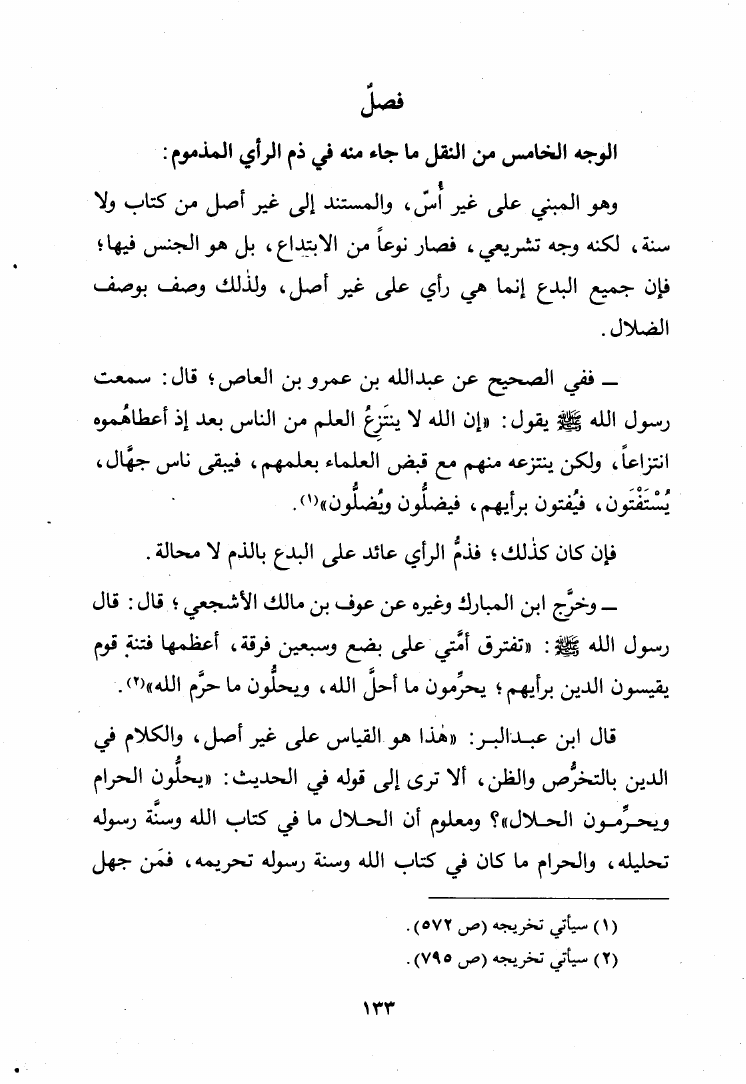 فصلٌ
الوجه الخامس من النقل ما جاء منه في ذم الرأي المذموم:
وهو المبني على غير أُسّ، والمستند إلى غير أصل من كتاب ولا
سنة، لكنه وجه تشريعي، فصار نوعاً من الابتداع، بل هو الجنس فيها؛
فإن جميع البدع إنما هي رأي على غير أصل، ولذٰلك وصف بوصف
الضلال.
ــ ففي الصحيح عن عبدالله بن عمرو بن العاص؛ قال: سمعت
رسول الله ﷺ يقول: «إن الله لا ينتَزِعُ العلم من الناس بعد إذ أعطاهُموه
انتزاعاً، ولكن ينتزعه منهم مع قبض العلماء بعلمهم، فيبقى ناس جهَّال،
يُسْتَفْتَون، فيُفتون برأيهم، فيضلُّون ويُضلُّون»(١).
فإن كان كذٰلك؛ فذمُّ الرأي عائد على البدع بالذم لا محالة.
ــ وخرَّج ابن المبارك وغيره عن عوف بن مالك الأشجعي؛ قال: قال
رسول الله ﷺ: «تفترق أمَّتي على بضع وسبعين فرقة، أعظمها فتنة قوم
يقيسون الدين برأيهم؛ يحرِّمون ما أحلَّ الله، ويحلُّون ما حرَّم الله»(٢).
قال ابن عبدالبر: «هٰذا هو القياس على غير أصل، والكلام في
الدين بالتخرُّص والظن، ألا ترى إلى قوله في الحديث: «يحلُّون الحرام
ويحرِّمون الحلال»؟ ومعلوم أن الحلال ما في كتاب الله وسنَّة رسوله
تحليله، والحرام ما كان في كتاب الله وسنة رسوله تحريمه، فمَن جهل
(١) سيأتي تخريجه (ص ٥٧٢).
(٢) سيأتي تخريجه (ص ٧٩٥).
١٣٣